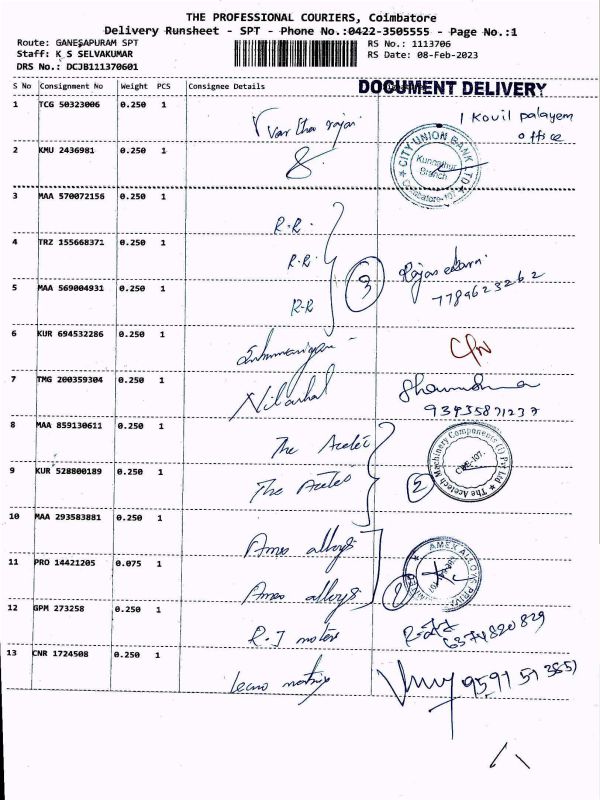 THE PROFESSIONAL COURIERS, Coimbatore
Delivery Runsheet - SPT - Phone No.:0422-3505555 - Page No.:1
Route: GANESAPURAM SPT
RS No.: 1113706
Staff: K S SELVAKUMAR
RS Date: 08-Feb-2023
DRS No.: DCJB111370601
DOCUMENT DELIVERY
S No Consignment No Weight PCS Consignee Details
1 TCG 50323006 0.250 1
1 Kovil palayem
office
CITY UNION BANK LTD
Kunnathur
Branch
Coimbatore-107
2 KMU 2436981 0.250 1
3 MAA 570072156 0.250 1 R.R.
4 TRZ 155668371 0.250 1 R.R.
3
5 MAA 569004931 0.250 1 R-R
6 KUR 694532286 0.250 1
7 TMG 200359304 0.250 1
8 MAA 859130611 0.250 1 The Acetec
The Acetech Machinery Components (I) Pvt Ltd
CBE-107.
2
9 KUR 528800189 0.250 1 The Acetec
10 MAA 293583881 0.250 1 Amex alloys
AMEX ALLOYS PRIVATE
1
11 PRO 14421205 0.075 1 Amex alloys
12 GPM 273258 0.250 1 R.J motors
6374820829
13 CNR 1724508 0.250 1